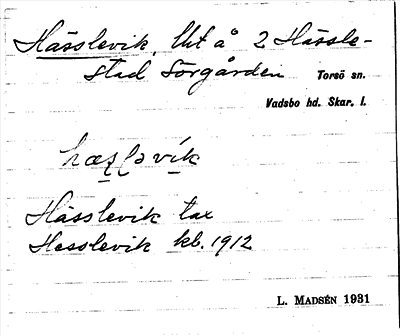 Hässlevik, Ut å 2 Hässle-
stad Sörgården Torsö sn.
Vadsbo hd. Skar. l.
hæslevík
Hässlevik tax
Hesslevik kb. 1912
L. MADSÉN 1931